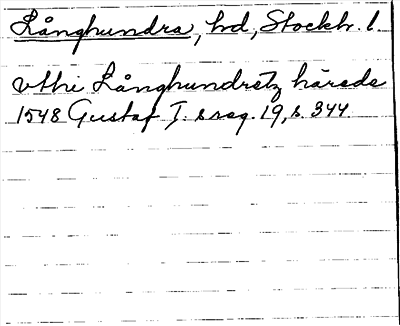 Långhundra, hd, Stockh. l.
vthi Långhundretz härede
1548 Gustaf I:s reg. 19, s. 344